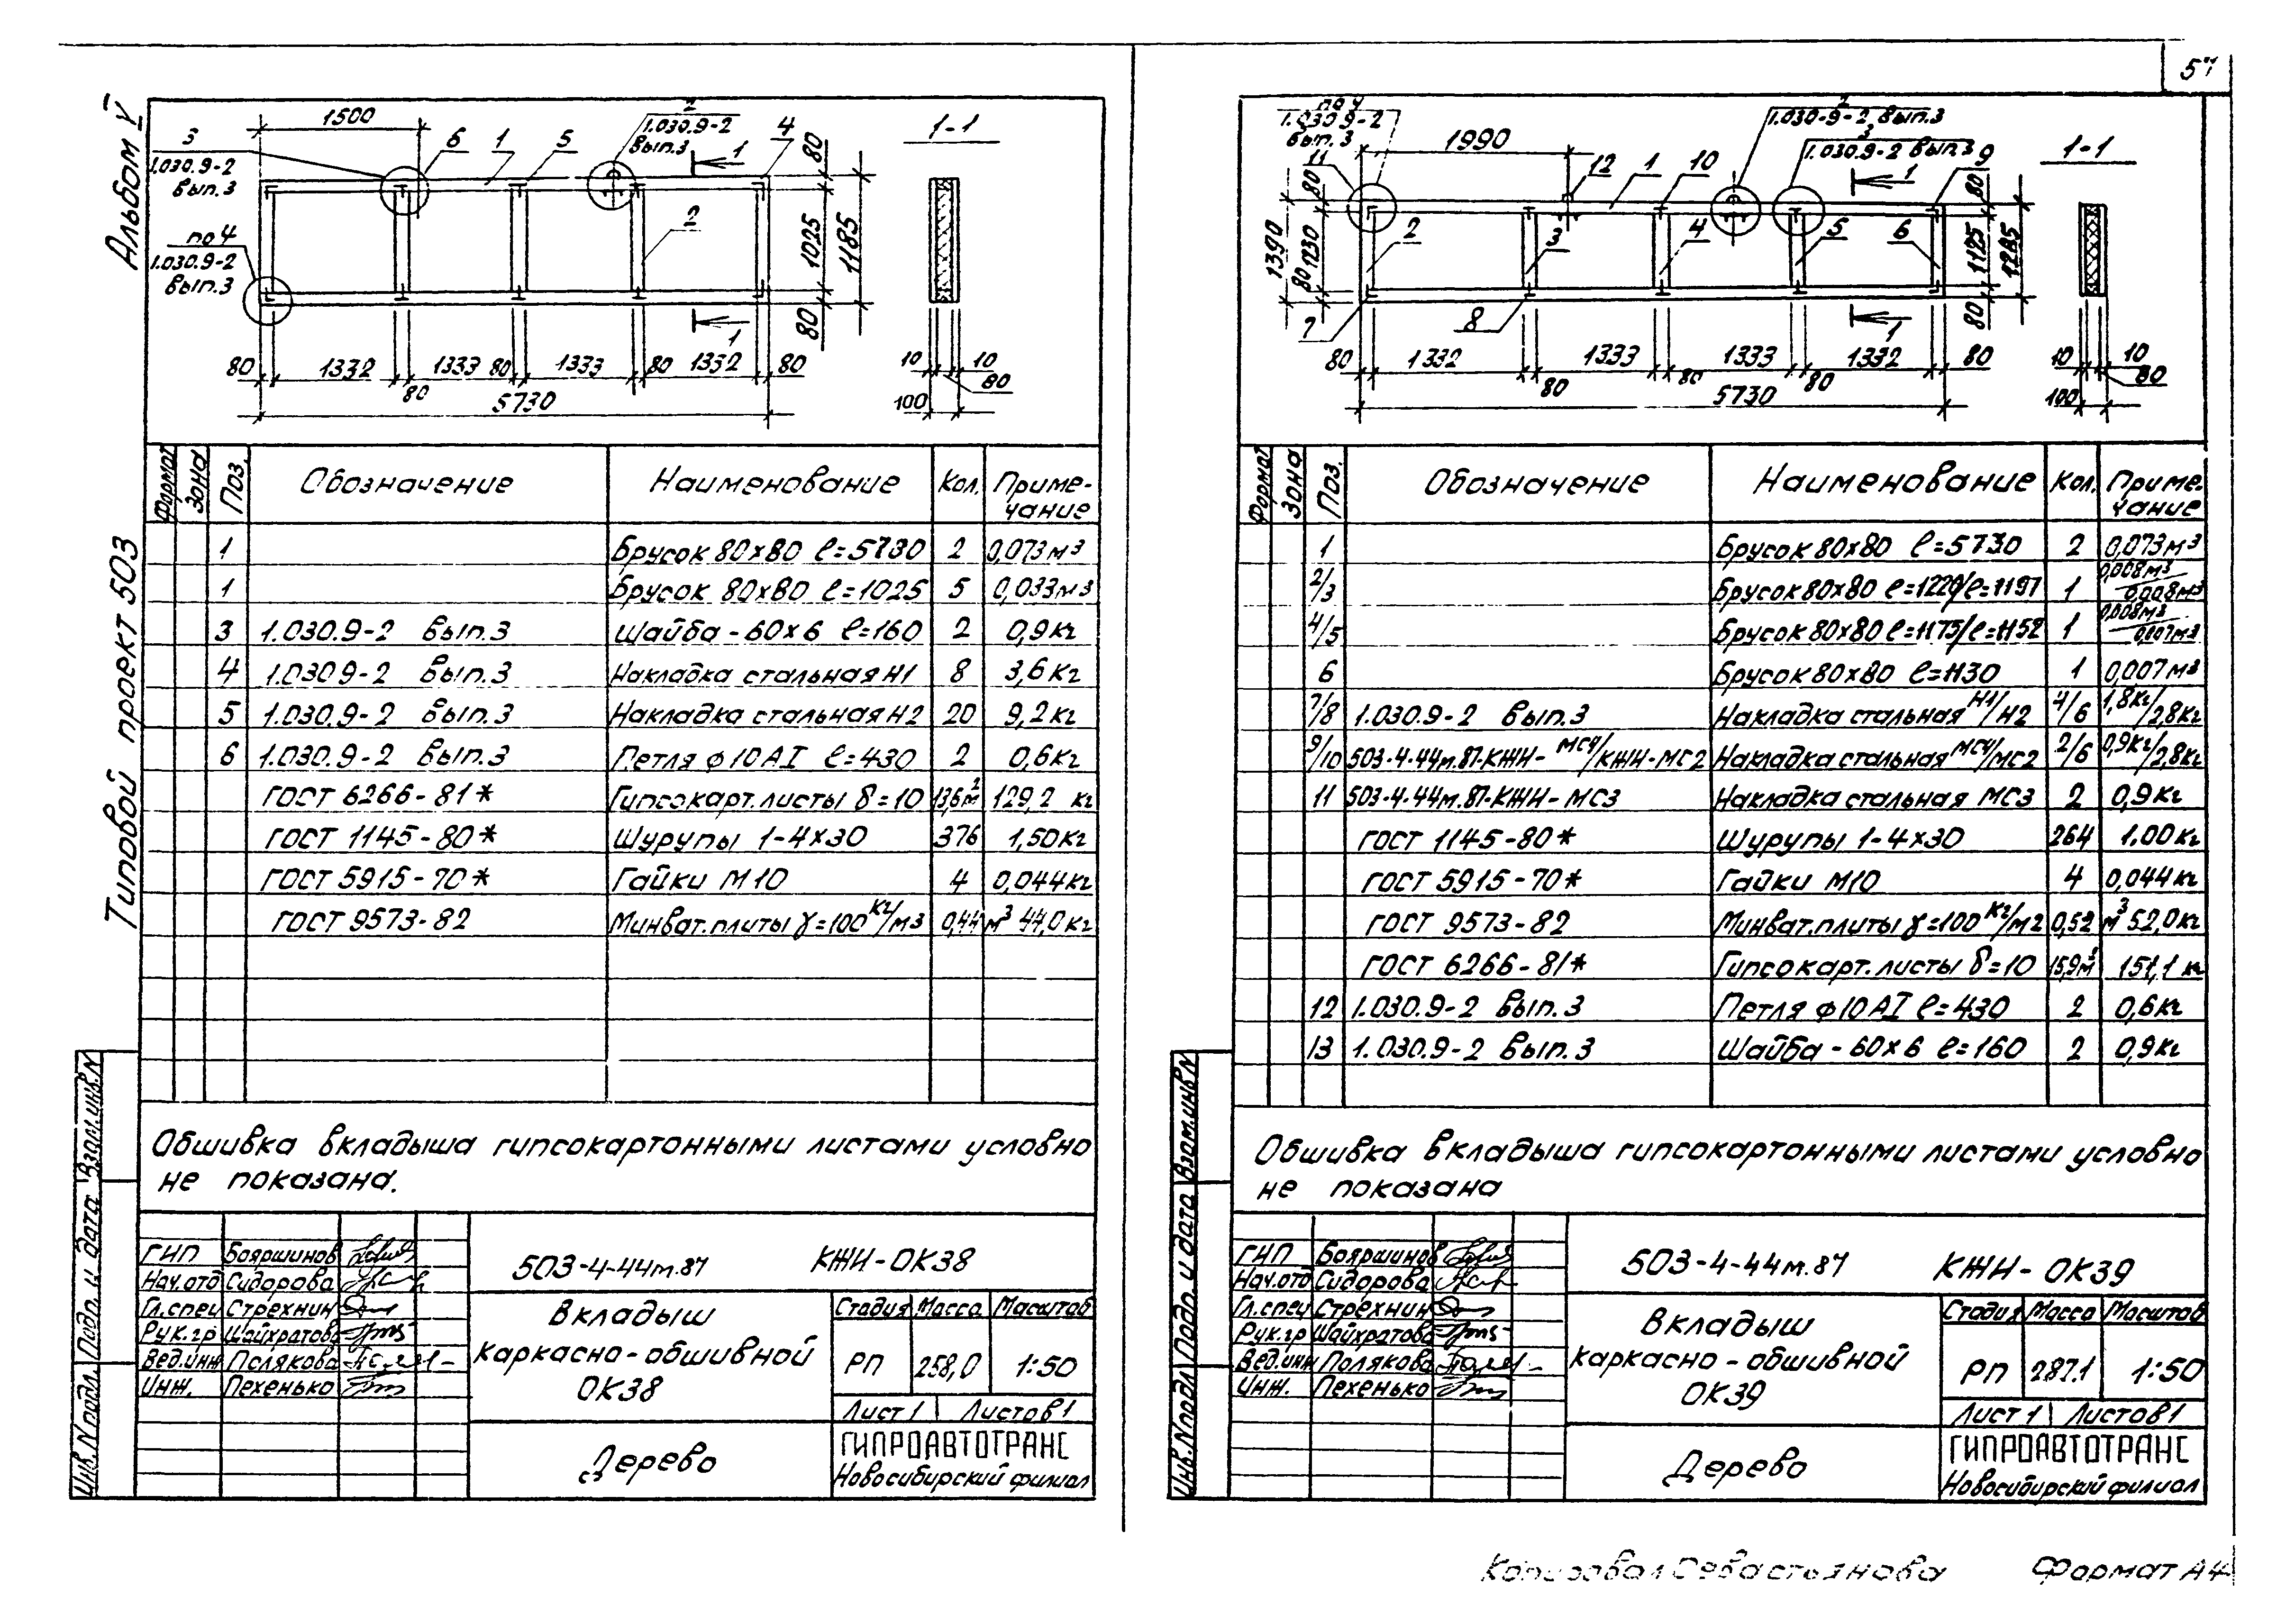 57
Альбом V
Типовой проект 503
1500
3
1.030.9-2
вып.3
6
1
5
2
1.030.9-2
вып.3
1
4
80
1-1
по 4
1.030.9-2
вып.3
2
1025
1185
80
1
80 1332 80 1333 80 1333 80 1332 80
5730
10 10
80
100
Формат Зона Поз. Обозначение Наименование Кол. Приме-
чание
1 Брусок 80х80 ℓ=5730 2 0,073м3
1 Брусок 80х80 ℓ=1025 5 0,033м3
3 1.030.9-2 Вып.3 Шайба-60х6 ℓ=160 2 0,9кг
4 1.030.9-2 Вып.3 Накладка стальная Н1 8 3,6кг
5 1.030.9-2 Вып.3 Накладка стальная Н2 20 9,2кг
6 1.030.9-2 Вып.3 Петля ф10АI ℓ=430 2 0,6кг
ГОСТ 6266-81* Гипсокарт.листы δ=10 13,6м2 129,2 кг
ГОСТ 1145-80* Шурупы 1-4х30 376 1,50кг
ГОСТ 5915-70* Гайки М10 4 0,044кг
ГОСТ 9573-82 Минват.плиты γ=100кг/м3 0,44 м3 44,0кг
Обшивка вкладыша гипсокартонными листами условно
не показана.
Взам.инв.N
Подп. и дата
Инв.N подл.
ГИП Бояршинов
Нач.отд Сидорова
Гл.спец Стрехнин
Рук.гр Шайхратова
Вед.инж Полякова
Инж. Пехенько
503-4-44м.87 КЖИ-ОК38
Вкладыш
каркасно-обшивной
ОК38
Стадия Масса Масштаб
РП 258,0 1:50
Лист 1 Листов 1
Дерево
ГИПРОАВТОТРАНС
Новосибирский филиал
по 4
1.030.9-2
вып.3
11
1990
12
1
10
2
1.030-9-2 Вып.3
3
1.030.9-2 Вып.3
9
1
1-1
80
1390
1230
80
2
3
4
5
6
80
1125
1285
80
7
8
1
80 1332 80 1333 80 1333 80 1332 80
5730
10 10
80
100
Формат Зона Поз. Обозначение Наименование Кол. Приме-
чание
1 Брусок 80х80 ℓ=5730 2 0,073м3
2/3 Брусок 80х80 ℓ=1220/ℓ=1197 1 0,008м3/0,008м3
4/5 Брусок 80х80 ℓ=1175/ℓ=1152 1 0,008м3/0,007м3
6 Брусок 80х80 ℓ=1130 1 0,007м3
7/8 1.030.9-2 Вып.3 Накладка стальная Н1/Н2 4/6 1,8кг/2,8кг
9/10 503-4-44м.87-КЖИ-МС4/КЖИ-МС2 Накладка стальная МС4/МС2 2/6 0,9кг/2,8кг
11 503-4-44м.87-КЖИ-МС3 Накладка стальная МС3 2 0,9кг
ГОСТ 1145-80* Шурупы 1-4х30 264 1.00кг
ГОСТ 5915-70* Гайки М10 4 0,044кг
ГОСТ 9573-82 Минват.плиты γ=100кг/м2 0,52 м3 52,0кг
ГОСТ 6266-81* Гипсокарт.листы δ=10 15,9м2 151,1 кг
12 1.030.9-2 Вып.3 Петля ф10АI ℓ=430 2 0,6кг
13 1.030.9-2 Вып.3 Шайба-60х6 ℓ=160 2 0,9кг
Обшивка вкладыша гипсокартонными листами условно
не показана
Взам.инв.N
Подп. и дата
Инв.N подл
ГИП Бояршинов
Нач.отд Сидорова
Гл.спец Стрехнин
Рук.гр Шайхратова
Вед.инж Полякова
Инж. Пехенько
503-4-44м.87 КЖИ-ОК39
Вкладыш
каркасно-обшивной
ОК39
Стадия Масса Масштаб
РП 287.1 1:50
Лист 1 Листов 1
Дерево
ГИПРОАВТОТРАНС
Новосибирский филиал
Копировал Севастьянова Формат А4